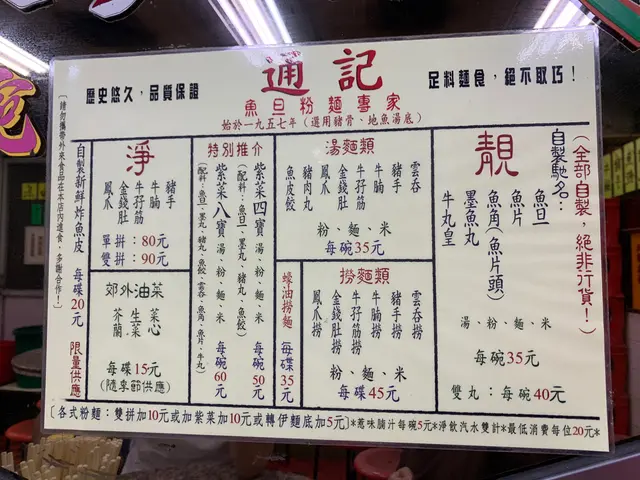 通記
歷史悠久，品質保證
足料麵食，絕不取巧！
魚旦粉麵專家
始於一九五七年（選用豬骨、地魚湯底）
（全部自製，絕非行貨！）
自製馳名：
靚
魚旦
魚片
魚角（魚片頭）
墨魚丸
牛丸皇
湯、粉、麵、米
每碗35元
雙丸：每碗40元
湯麵類
雲吞
豬手
牛腩
牛孖筋
金錢肚
鳳爪
豬肉丸
魚皮餃
粉、麵、米
每碗35元
撈麵類
雲吞撈
豬手撈
牛腩撈
牛孖筋撈
金錢肚撈
鳳爪撈
粉、麵、米
每碟45元
特別推介
紫菜四寶湯、粉、麵、米 每碗50元
（配料：魚旦、墨丸、豬丸、魚餃）
紫菜八寶湯、粉、麵、米 每碗60元
（配料：魚旦、墨丸、豬丸、魚餃、雲吞、魚角、魚片、牛丸）
蠔油撈麵 每碟35元
淨
豬手
牛腩
牛孖筋
金錢肚
鳳爪
單拼：80元
雙拼：90元
郊外油菜
菜心
生菜
芥蘭
每碟15元
（隨季節供應）
自製新鮮炸魚皮 每碟20元 限量供應
〔請勿攜帶外來食品在本店內進食，多謝合作！〕
〔各式粉麵：雙拼加10元或加紫菜加10元或轉伊麵底加5元〕*惹味腩汁每碗5元*淨飲汽水雙計*最低消費每位20元*